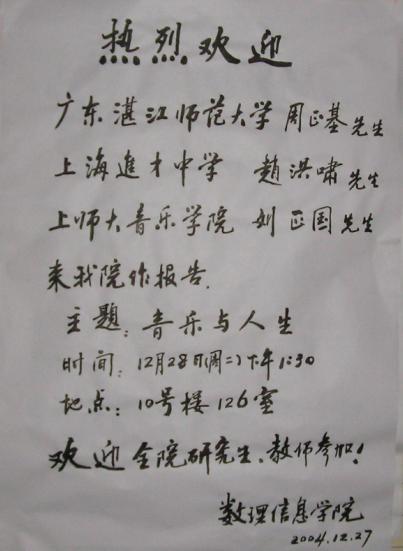 热烈欢迎
广东湛江师范大学 周正基先生
上海進才中学 趙洪啸先生
上师大音乐学院 刘正国先生
来我院作报告.
主题: 音乐与人生
时间: 12月28日(周二)下午1:30
地点: 10号楼126室
欢迎全院研究生、教师参加!
数理信息学院
2004.12.27